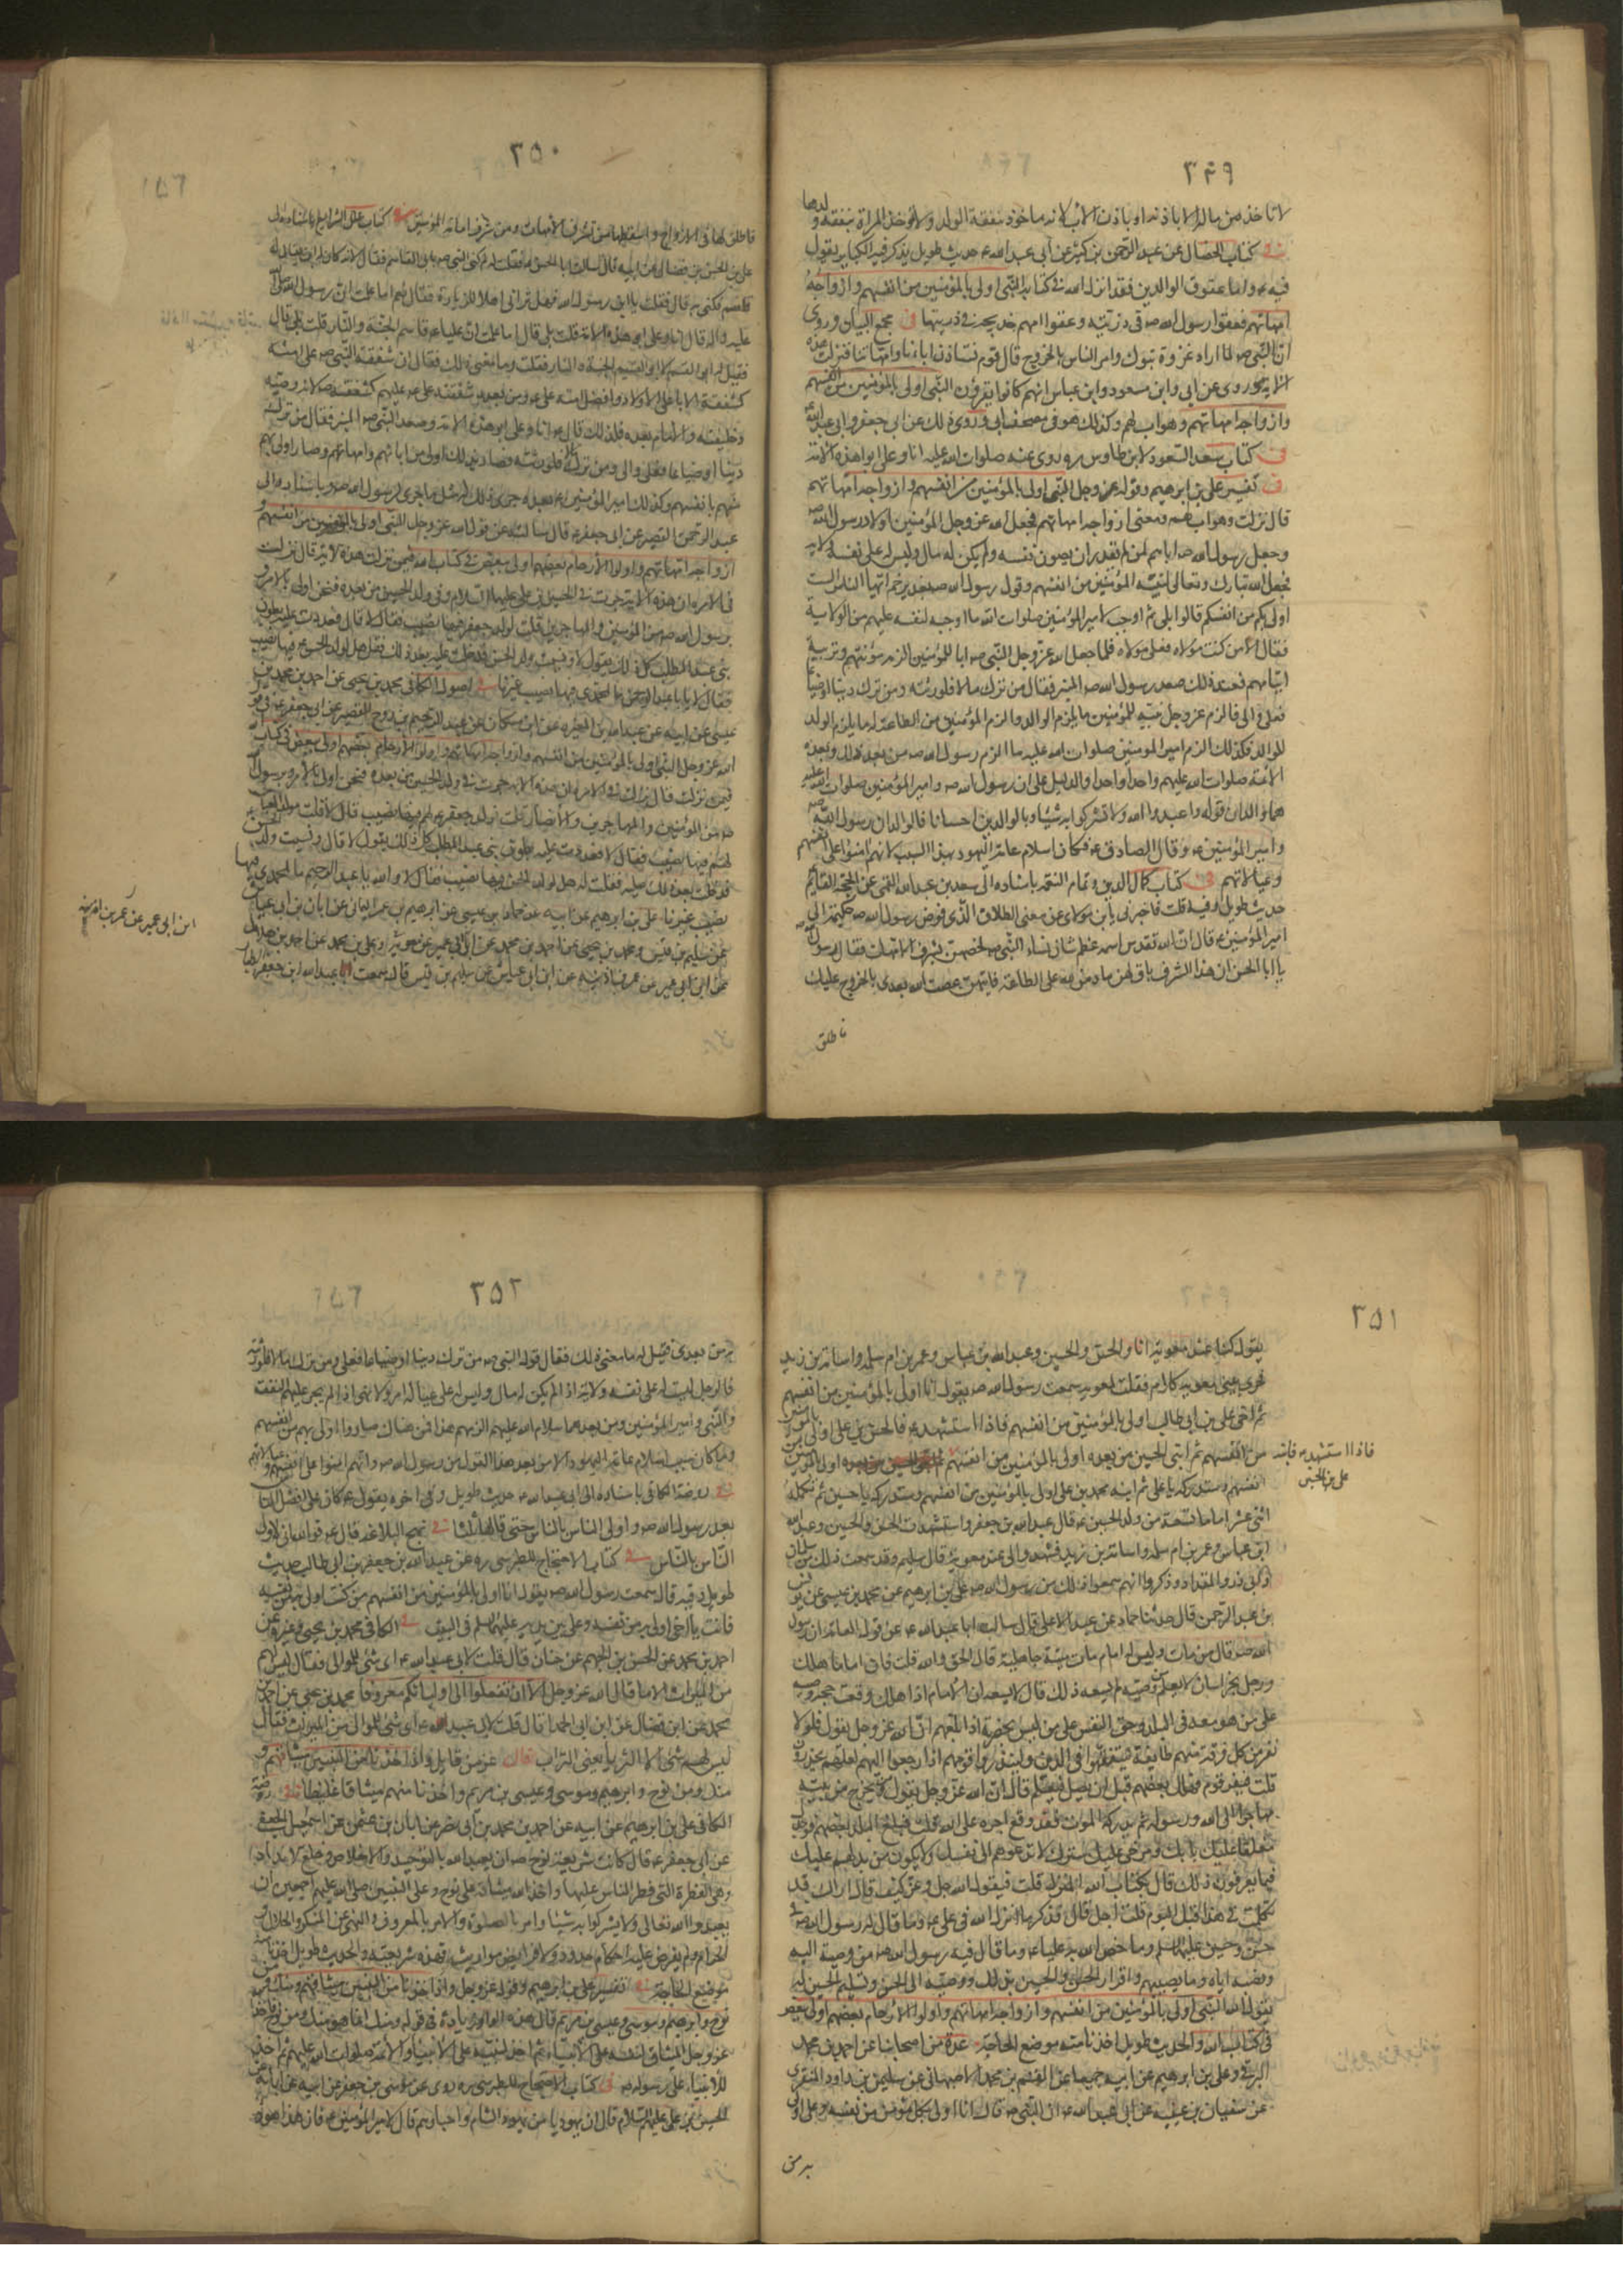 ٣٤٩
لا تأخذ من ماله الا باذنه او باذن الأب لانه ماخوذ بنفقة الولد ولا تؤخذ المرأة بنفقة ولدها
في كتاب الخصال عن عبد الرحمن بن كثير عن أبي عبد الله ع حديث طويل يذكر فيه الكباير يقول
فيه ع واما عقوق الوالدين فقد انزل الله في كتابه النبي اولى بالمؤمنين من انفسهم وازواجه
امهاتهم فعقوا رسول الله ص في ذريته وعقوا امهم خديجة في ذريتها في مجمع البيان وروى
ان النبي ص لما اراد غزوة تبوك وامر الناس بالخروج قال قوم نستاذن اباءنا وامهاتنا فنزلت هذه
الاية وروى عن ابي وابن مسعود وابن عباس انهم كانوا يقرؤن النبي اولى بالمؤمنين من انفسهم
وازواجه امهاتهم وهو اب لهم وكذلك هو في مصحف ابي وروى ذلك عن ابي جعفر وابي عبد الله ع
في كتاب سعد السعود لابن طاوس ره روى عنه صلوات الله عليه انا وعلي ابوا هذه الامة
في تفسير علي بن ابرهيم وقوله عز وجل النبي اولى بالمؤمنين من انفسهم وازواجه امهاتهم
قال نزلت وهو اب لهم ومعنى ازواجه امهاتهم فجعل الله عز وجل المؤمنين اولاد رسول الله ص
وجعل رسول الله ص اباهم لمن لم يقدر ان يصون نفسه ولم يكن له مال وليس له على نفسه ولاية
فجعل الله تبارك وتعالى لنبيه المؤمنين من انفسهم وقول رسول الله ص بغدير خم ايها الناس الست
اولى بكم من انفسكم قالوا بلى ثم اوجب لامير المؤمنين صلوات الله ما اوجبه لنفسه عليهم من الولاية
فقال الا من كنت مولاه فعلي مولاه فلما جعل الله عز وجل النبي ص ابا للمؤمنين الزمه مؤنتهم وتربية
ايتامهم فعند ذلك صعد رسول الله ص المنبر فقال من ترك مالا فلورثته ومن ترك دينا او ضياعا
فعلي والي فالزم عز وجل نبيه للمؤمنين ما يلزم الوالد والزم المؤمنين من الطاعة له ما يلزم الولد
للوالد فكذلك الزم امير المومنين صلوات الله عليه ما الزم رسول الله ص من بعد ذلك وبعده
الائمة صلوات الله عليهم واحدا واحدا والدليل على ان رسول الله ص وامير المؤمنين صلوات الله عليه
هما والدان قوله واعبدوا الله ولا تشركوا به شيئا وبالوالدين احسانا فالوالدان رسول الله ص
وامير المؤمنين ع وقال الصادق ع فكان اسلام عامة اليهود بهذا السبب لانهم امنوا على انفسهم
وعيالاتهم في كتاب كمال الدين وتمام النعمة باسناده الى سعد بن عبد الله القمي عن الحجة القايم
حديث طويل وفيه قلت فاخبرني يابن مولاى عن معنى الطلاق الذى فوض رسول الله ص حكمه الى
امير المؤمنين ع قال ان الله تقدس اسمه عظم شان نساء النبي ص فخصهن بشرف الامهات فقال رسول الله ص
يا ابا الحسن ان هذا الشرف باق لهن ما دمن لله على الطاعة فايتهن عصت الله بعدى بالخروج عليك
فاطلق
٣٥٠
فاطلق لها في الازواج واسقطها من تشرف الامهات ومن شرف امامة المؤمنين في كتاب علل الشرايع باسناده الى
علي بن الحسن بن فضال عن ابيه قال سالت ابا الحسن ع فقلت له لم كنى النبي ص بابي القاسم فقال لانه كان له ابن يقال له
قاسم فكنى به قال فقلت يا ابن رسول الله فهل تراني اهلا للزيادة فقال نعم اما علمت ان رسول الله صلى الله
عليه واله قال انا وعلي ابوا هذه الامة قلت بلى قال اما علمت ان عليا ع قاسم الجنة والنار قلت بلى قال
فقيل له ابو القسم لانه ابو قسيم الجنة والنار فقلت وما معنى ذلك فقال ان شفقة النبي ص على امته
كشفقة الاباء على الاولاد وافضل امته علي ع ومن بعده شفقة علي ع عليهم كشفقته ص لانه وصيه
وخليفته والامام بعده فلذلك قال ع انا وعلي ابوا هذه الامة وصعد النبي ص المنبر فقال من ترك
دينا او ضياعا فعلي والي ومن ترك مالا فلورثته فصار بذلك اولى من ابائهم وامهاتهم وصار اولى بهم
منهم بانفسهم وكذلك امير المؤمنين ع بعده جرى ذلك له مثل ما جرى لرسول الله ص وباسناده الى
عبد الرحمن القصير عن ابي جعفر ع قال سالته عن قول الله عز وجل النبي اولى بالمؤمنين من انفسهم و
ازواجه امهاتهم واولوا الأرحام بعضهم اولى ببعض في كتاب الله فيمن نزلت هذه الاية قال نزلت
في الامرة ان هذه الاية جرت في الحسين بن علي عليهما السلام وفي ولد الحسين من بعده فنحن اولى بالامر و
برسول الله ص من المؤمنين والمهاجرين قلت لولد جعفر فيها نصيب فقال لا قال فعددت عليه بطون
بني عبد المطلب كل ذلك يقول لا ونسيت ولد الحسن فدخلت عليه بعد ذلك فقلت هل لولد الحسن ع فيها نصيب
فقال لا يابا عبد الرحمن ما لمحمدي فيها نصيب غيرنا في اصول الكافي محمد بن يحيى عن احمد بن محمد بن
عيسى عن ابيه عن عبد الله بن المغيرة عن ابن مسكان عن عبد الرحيم بن روح القصير عن ابي جعفر ع في قول
الله عز وجل النبي اولى بالمؤمنين من انفسهم وازواجه امهاتهم واولوا الارحام بعضهم اولى ببعض في كتاب الله
فيمن نزلت فقال نزلت في الامرة ان هذه الاية جرت في ولد الحسين من بعده فنحن اولى بالامر وبرسول الله
ص من المؤمنين والمهاجرين والأنصار قلت فولد جعفر لهم فيها نصيب قال لا قلت فلولد العباس
فيها نصيب فقال لا فعددت عليه بطون بني عبد المطلب كل ذلك يقول لا قال ونسيت ولد الحسن ع
فدخلت بعد ذلك عليه فقلت له هل لولد الحسن فيها نصيب فقال لا والله يا عبد الرحيم ما لمحمدي فيها
نصيب غيرنا علي بن ابرهيم عن ابيه عن حماد بن عيسى عن ابرهيم بن عمر اليماني عن ابان بن ابي عياش
عن سليم بن قيس ومحمد بن يحيى عن احمد بن محمد عن ابن ابي عمير عن عمر بن اذينة وعلي بن محمد عن احمد بن هلال
عن ابن ابي عمير عن عمر بن اذينة عن ابان بن ابي عياش عن سليم بن قيس قال سمعت عبد الله بن جعفر الطيار
ابن ابي عمير عن عمر بن اذينة
٣٥١
يقول كنا عند معوية انا والحسن والحسين وعبد الله بن عباس وعمر بن ام سلمة واسامة بن زيد
فجرى بيني وبين معوية كلام فقلت لمعوية سمعت رسول الله ص يقول انا اولى بالمؤمنين من انفسهم
ثم اخي علي بن ابي طالب اولى بالمؤمنين من انفسهم فاذا استشهد ع فالحسن بن علي اولى بالمؤمنين
من انفسهم ثم ابني الحسين من بعده اولى بالمؤمنين من انفسهم اولى بالمؤمنين من
انفسهم وستدركه يا علي ثم ابنه محمد بن علي اولى بالمؤمنين من انفسهم وستدركه يا حسين ثم تكمله
اثنى عشر اماما تسعة من ولد الحسين ع قال عبد الله بن جعفر واستشهدت الحسن والحسين وعبد الله
ابن عباس وعمر بن ام سلمة واسامة بن زيد فشهدوا لي عند معوية قال سليم وقد سمعت ذلك من سلمان
وابي ذر والمقداد وذكروا انهم سمعوا ذلك من رسول الله ص علي بن ابرهيم عن محمد بن عيسى عن يونس
بن عبد الرحمن قال حدثنا حماد عن عبد الاعلى قال سالت ابا عبد الله ع عن قول العامة ان رسول
الله ص قال من مات وليس له امام مات ميتة جاهلية قال الحق والله قلت فان اماما هلك
ورجل بخراسان لا يعلم من وصيه لم يسعه ذلك قال لا يسعه ان الامام اذا هلك وقعت حجة وصيه
على من هو معه في البلد وحق النفر على من ليس بحضرته اذا بلغهم ان الله عز وجل يقول فلولا
نفر من كل فرقة منهم طايفة ليتفقهوا في الدين ولينذروا قومهم اذا رجعوا اليهم لعلهم يحذرون
قلت فنفر قوم فهلك بعضهم قبل ان يصل فيعلم قال ان الله عز وجل يقول ومن يخرج من بيته
مهاجرا الى الله ورسوله ثم يدركه الموت فقد وقع اجره على الله قلت فبلغ البلد بعضهم فوجدك
مغلقا عليك بابك ومرخى عليك سترك لا تدعوهم الى نفسك ولا يكون من يدلهم عليك
فبما يعرفون ذلك قال بكتاب الله المنزل قلت فيقول الله جل وعز كيف قال اراك قد
تكلمت في هذا قبل اليوم قلت اجل قال فذكر ما انزل الله في علي ع وما قال له رسول الله ص في
حسن وحسين عليهما السلم وما خص الله به عليا ع وما قال فيه رسول الله ص من وصيته اليه
ونصبه اياه وما يصيبهم واقرار الحسن والحسين بذلك ووصيته الى الحسن وتسليم الحسين له
بقول الله النبي اولى بالمؤمنين من انفسهم وازواجه امهاتهم واولوا الأرحام بعضهم اولى ببعض
في كتاب الله والحديث طويل اخذنا منه موضع الحاجة عدة من اصحابنا عن احمد بن محمد
البرقي وعلي بن ابرهيم عن ابيه جميعا عن القسم بن محمد الاصبهاني عن سليمن بن داود المنقري
عن سفيان بن عيينة عن ابي عبد الله ع ان النبي ص قال انا اولى بكل مؤمن من نفسه وعلي اولى
به من
فاذا استشهد ع فابنه
علي بن الحسين
٣٥٢
به من بعدي فقيل له ما معنى ذلك فقال قول النبي ص من ترك دينا او ضياعا فعلي ومن ترك مالا فلورثته
فالرجل ليست له على نفسه ولاية اذا لم يكن له مال وليس له على عياله امر ولا نهى اذا لم يجر عليهم النفقة
والنبي وامير المؤمنين ومن بعدهما سلام الله عليهم الزمهم هذا فمن هناك صاروا اولى بهم من انفسهم
وما كان سبب اسلام عامة اليهود الا من بعد هذا القول من رسول الله ص وانهم امنوا على انفسهم وعيالاتهم
في روضة الكافي باسناده الى ابي عبد الله ع حديث طويل وفي اخره يقول ع كان علي افضل الناس
بعد رسول الله ص واولى الناس بالناس حتى قالها ثلثا في نهج البلاغة قال ع فوالله اني لاولى
الناس بالناس في كتاب الاحتجاج للطبرسى ره عن عبد الله بن جعفر بن ابي طالب حديث
طويل وفيه قال سمعت رسول الله ص يقول انا اولى بالمؤمنين من انفسهم من كنت اولى به من نفسه
فانت يا اخي اولى به من نفسه وعلي بين يديه عليهما السلم في البيت في الكافي محمد بن يحيى وغيره عن
احمد بن محمد عن الحسن بن الجهم عن حنان قال قلت لابي عبد الله ع اى شئ للموالى فقال ليس لهم
من الميراث الا ما قال الله عز وجل الا ان تفعلوا الى اوليائكم معروفا محمد بن يحيى عن احمد بن
محمد عن ابن فضال عن ابن ابي الحمرا قال قلت لابي عبد الله ع اى شئ للموالى من الميراث فقال
ليس لهم شئ الا الترباء يعني التراب قال عز من قايل واذ اخذنا من النبيين ميثاقهم و
منك ومن نوح وابرهيم وموسى وعيسى بن مريم واخذنا منهم ميثاقا غليظا في روضة
الكافي علي بن ابرهيم عن ابيه عن احمد بن محمد بن ابي نصر عن ابان بن عثمن عن اسمعيل الجعفي
عن ابي جعفر ع قال كانت شريعة نوح ص ان يعبد الله بالتوحيد والاخلاص وخلع الانداد
وهي الفطرة التي فطر الناس عليها واخذ الله ميثاقه على نوح وعلى النبيين صلى الله عليهم اجمعين ان
يعبدوا الله تعالى ولا يشركوا به شيئا وامر بالصلوة والامر بالمعروف والنهى عن المنكر والحلال و
الحرام ولم يفرض عليه احكام حدود ولا فرايض مواريث فهذه شريعته والحديث طويل اخذنا منه
موضع الحاجة في تفسير علي بن ابرهيم وقوله عز وجل واذ اخذنا من النبيين ميثاقهم ومنك ومن
نوح وابرهيم وموسى وعيسى بن مريم قال هذه الواو زيادة في قوله ومنك انما هو منك ومن نوح فاخذ
عز وجل الميثاق لنفسه على الانبياء ثم اخذ لنبيه على الانبياء والائمة صلوات الله عليهم ثم اخذ
للأنبياء على رسوله ص في كتاب الاحتجاج للطبرسى ره روى عن موسى بن جعفر عن ابيه عن ابائه عن
الحسين بن علي عليهم السلام قال ان يهوديا من يهود الشام واحبارهم قال لامير المؤمنين ع فان هذا هود